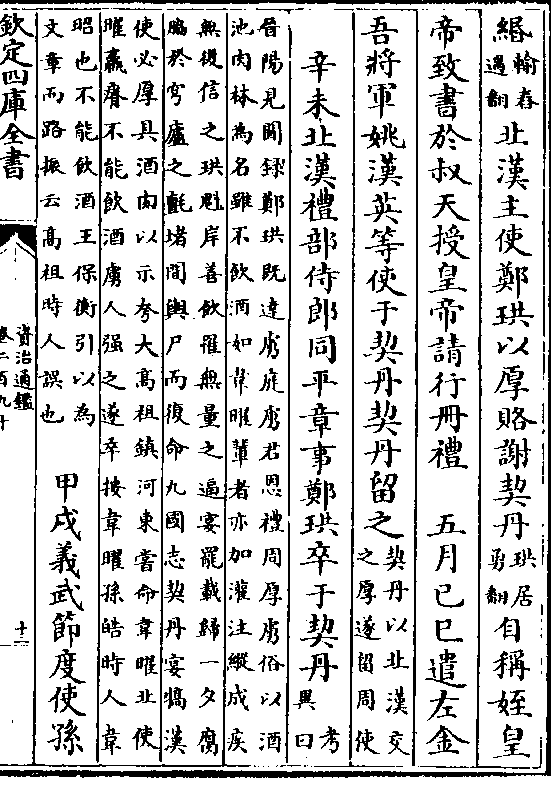 緡輸舂遇翻北漢主使鄭珙以厚賂謝契丹珙居勇翻自稱姪皇
帝致書於叔天授皇帝請行冊禮　五月己巳遣左金
吾將軍姚漢英等使于契丹契丹留之契丹以北漢交之厚遂留周使
辛未北漢禮部侍郎同平章事鄭珙卒于契丹考異曰
晉陽見聞錄鄭珙既達虜庭虜君恩禮周厚虜俗以酒
池肉林為名雖不飲酒如韋曜輩者亦加灌注縱成疾
無復信之珙魁岸善飲罹無量之逼宴罷載歸一夕腐
脇於穹廬之氈堵間輿尸而復命九國志契丹宴犒漢
使必厚具酒肉以示夸大高祖鎮河東嘗命韋曜北使
曜羸瘠不能飲酒虜人强之遂卒按韋曜孫皓時人韋
昭也不能飲酒王保衡引以為
文章而路振云高祖時人誤也　甲戌義武節度使孫
欽定四庫全書
資治通鑑
卷二百九十
十二